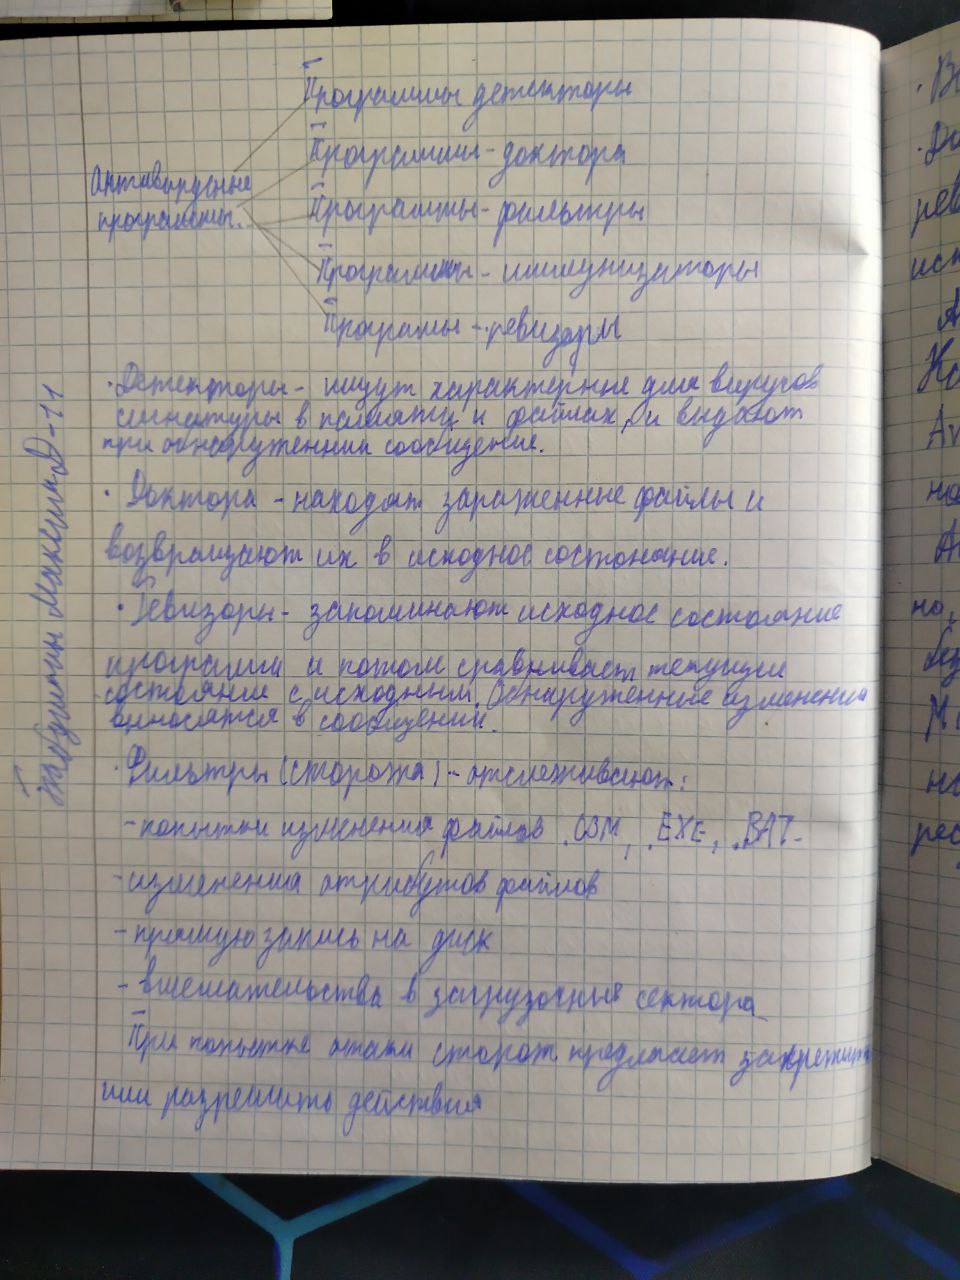 Программы детекторы
Программы-доктора
Антивирусные
программы
Программы-фильтры
Программы-иммунизаторы
Програмы-ревизоры
· Детекторы - ищут характерные для вирусов
сигнатуры в памяти и файлах, и выдают
при обнаружении сообщение.
· Доктора - находят зараженные файлы и
возвращают их в исходное состояние.
· Ревизоры - запоминают исходное состояние
программ и потом сравнивает текущее
состояние с исходным. Обнаруженные изменения
выносятся в сообщении.
· Фильтры (сторожа) - отслеживают:
- попытки изменения файлов .COM, .EXE, .BAT.
- изменения атрибутов файлов
- прямую запись на диск
- вмешательства в загрузочные сектора
При попытке атаки сторож предлагает запретить
или разрешить действия
Максимилиан
Д-11